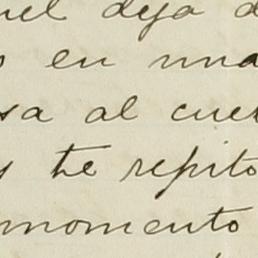 uel deja d
s en una
sa al cue
y te repito
momento